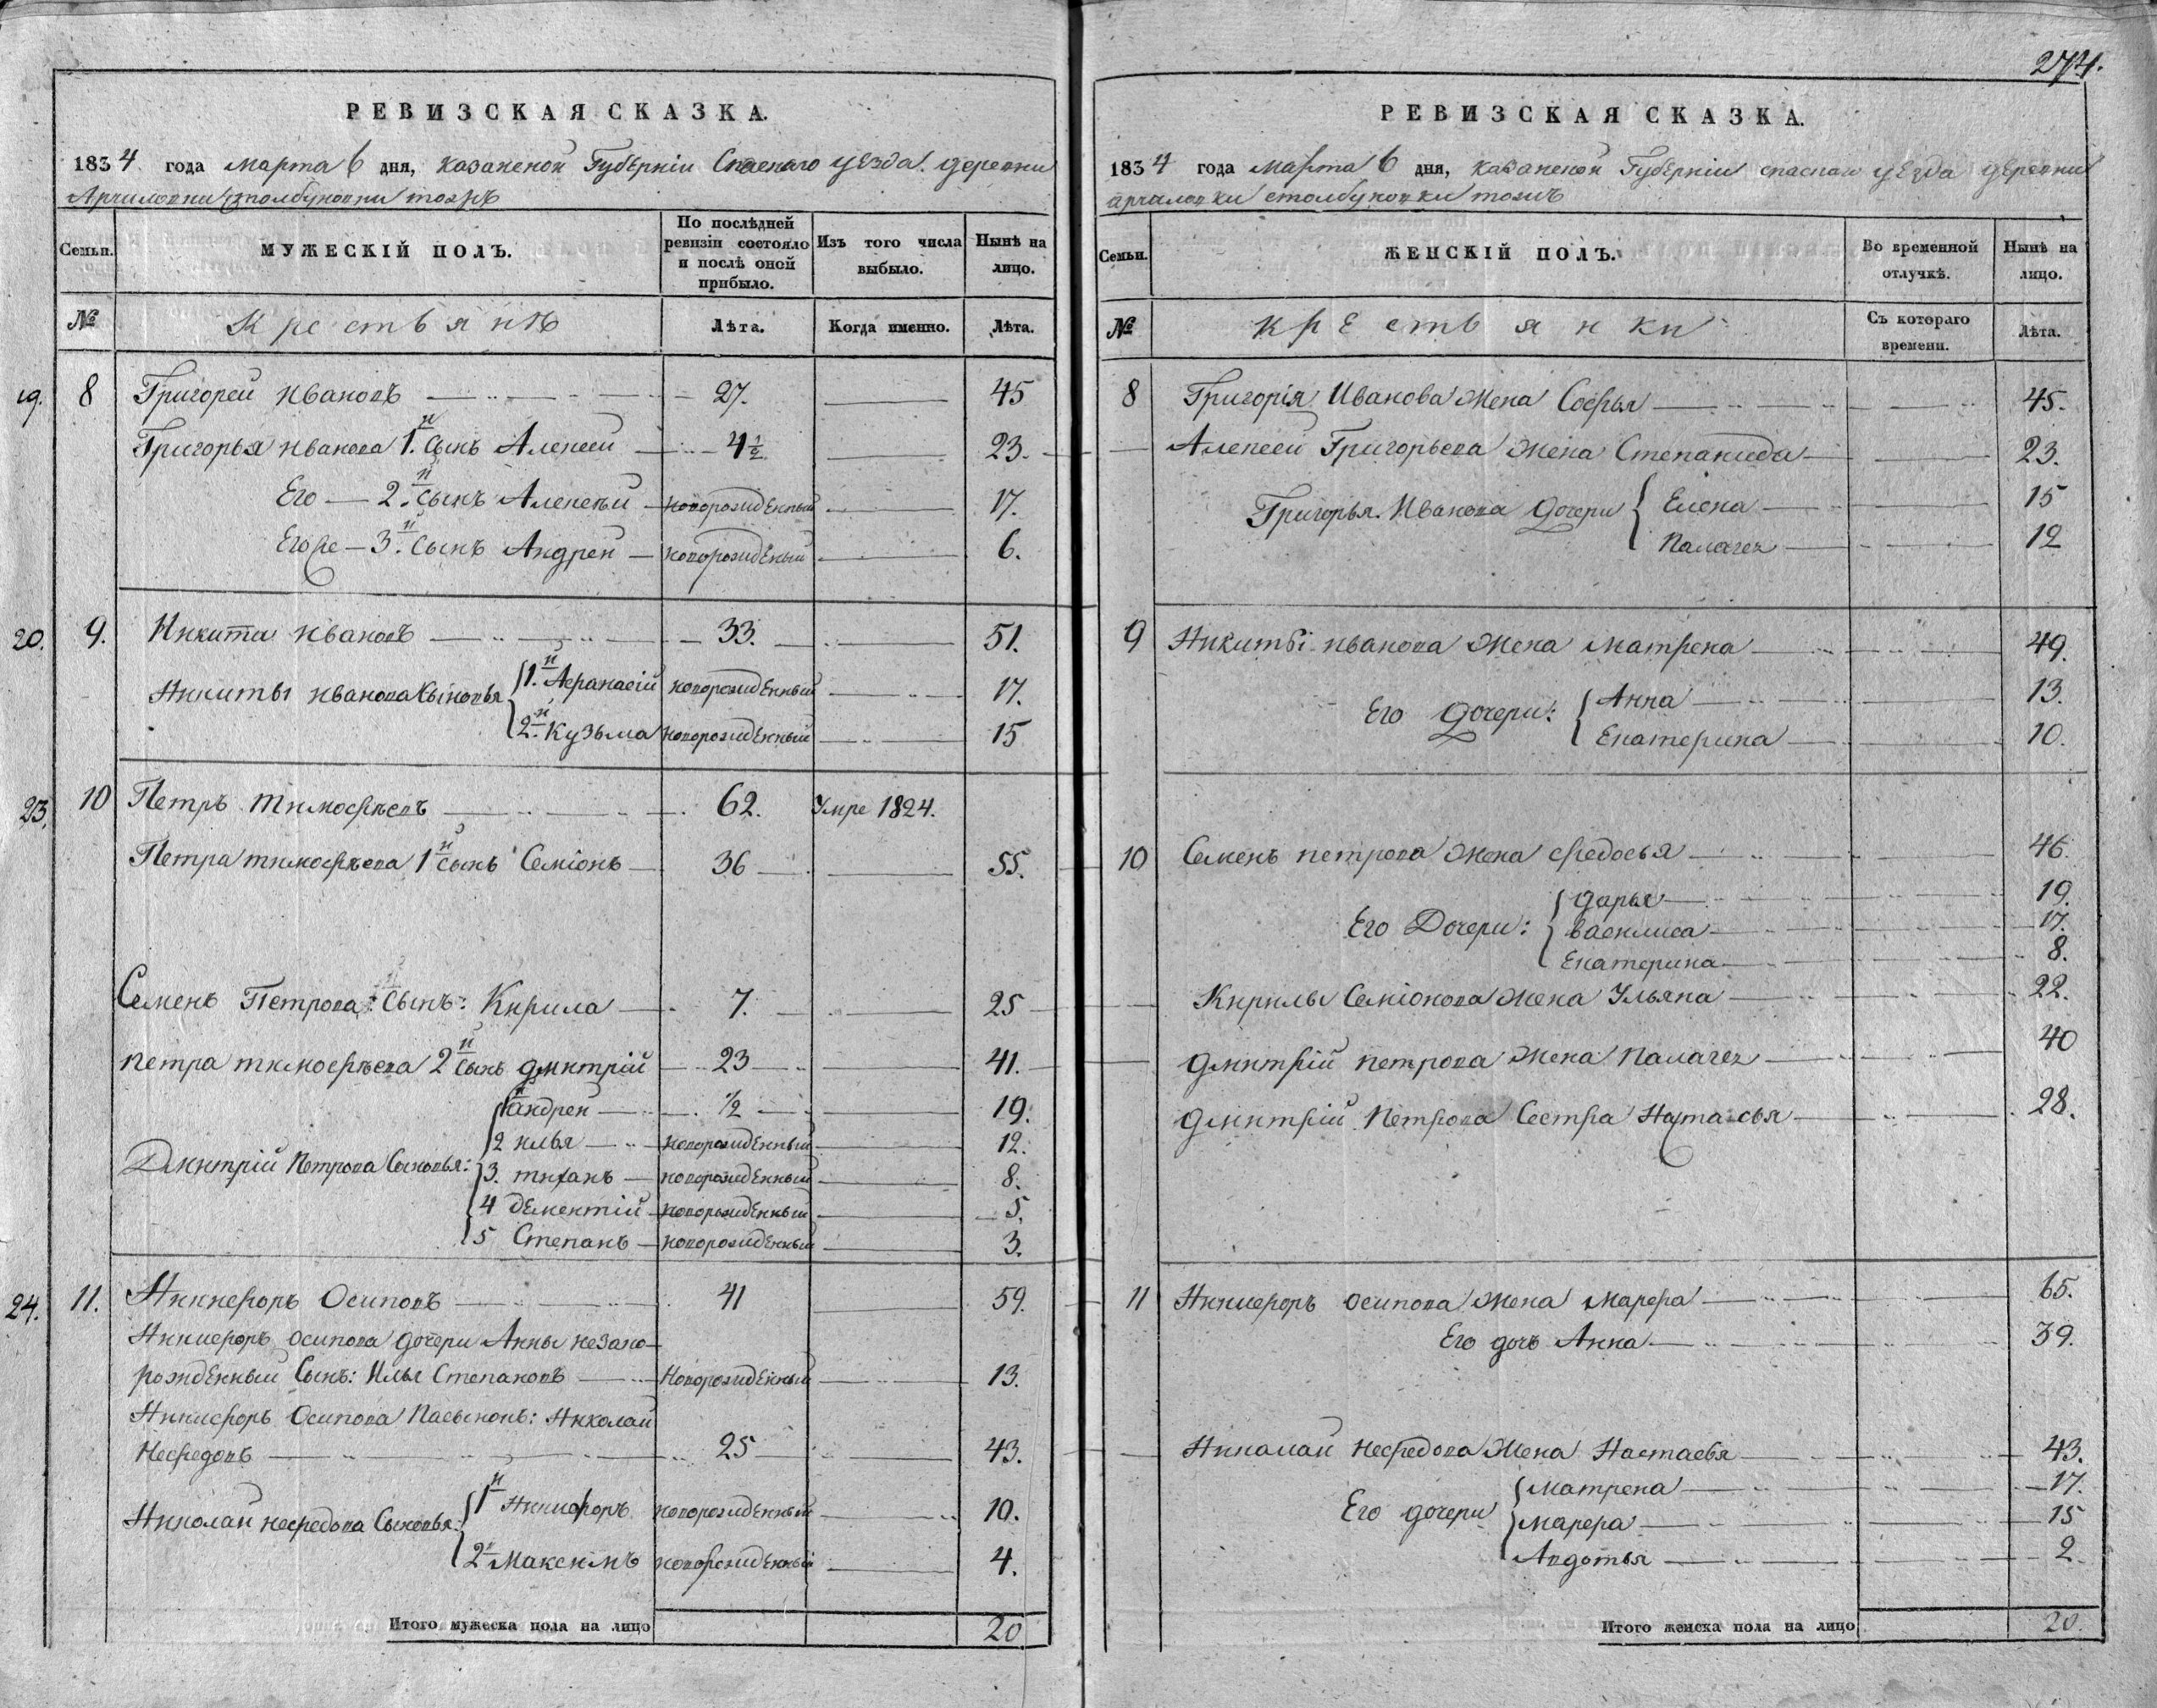 274.
РЕВИЗСКАЯ СКАЗКА.
1834 года марта 6 дня, казанской Губерніи Спаскаго уезда. деревни
Арчиловки столбуновки тожъ
Семьи. МУЖЕСКІЙ ПОЛЪ. По послѣдней ревизіи состояло и послѣ оной прибыло. Изъ того числа выбыло. Нынѣ на лицо.
№ Крестьянѣ Лѣта. Когда именно. Лѣта.
19. 8 Григорей ивановъ 27. 45
Григорья иванова 1.й сынъ Алексей 4½ 23.
Его 2.й сынъ Алексѣй новорожденный 17.
Егоже 3.й сынъ Андрей новорожденый 6.
20. 9. Никита ивановъ 33. 51.
Никиты иванова Сыновья 1.й Афанасій новорожденный 17.
2.й Кузьма новорожденный 15
23. 10 Петръ тимофѣевъ 62. Умре 1824.
Петра тимофѣева 1й сынъ Семіонъ 36 55.
Семенъ Петрова: Сынъ: Кирила 7. 25
петра тимофѣева 2й сынъ дмитрій 23 41.
1й андрей ½ 19.
2 илья новорожденный 12.
Дмитрій Петрова Сыновья: 3. тиханъ новорожденный 8.
4 дементій новорожденный 5.
5 Степанъ новорожденный 3.
24. 11. Никифоръ Осиповъ 41 59.
Никифоръ осипова дочери Анны незако-
рожденный Сынъ: Илья Степановъ Новорожденный 13.
Никифоръ Осипова Пасынокъ: Николай
Нефедовъ 25 43.
Николай нефедова Сыновья: 1й Никифоръ новорожденный 10.
2й Максимъ новорожденный 4.
Итого мужеска пола на лицо 20
РЕВИЗСКАЯ СКАЗКА.
1834 года Марта 6 дня, казанской Губерніи спаскаго уезда деревни
арчиловки столбуновки тожъ
Семьи. ЖЕНСКІЙ ПОЛЪ. Во временной отлучкѣ. Нынѣ на лицо.
№ крестьянки Съ котораго времени. Лѣта.
8 Григорія Иванова Жена Софья 45.
Алексей Григорьева жена Степанида 23.
Григорья Иванова дочери Елена 15
Палагея 12
9 Никиты иванова жена матрена 49.
Его дочери: Анна 13.
Екатерина 10.
10 Семенъ петрова жена федосья 46.
дарья 19.
Его Дочери: василиса 17.
Екатерина 8.
Кирилы Семіонова жена Ульяна 22.
дмитрій петрова жена палагея 40
дмитрій Петрова Сестра Наталья 28.
11 Никифоръ осипова жена марфа 65.
Его дочь Анна 39.
Николай нефедова жена Настасья 43.
матрена 17.
Его дочери марфа 15
Авдотья 2
Итого женска пола на лицо 20.